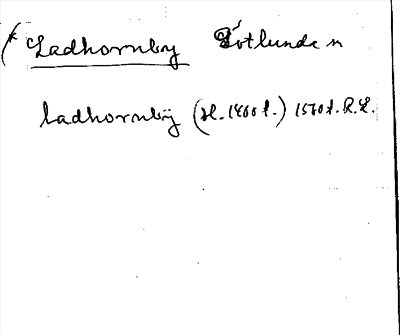 (* Ladhornby Götlunda sn
ladhornby (sl. 1400 t.) 1540 t. R.L.